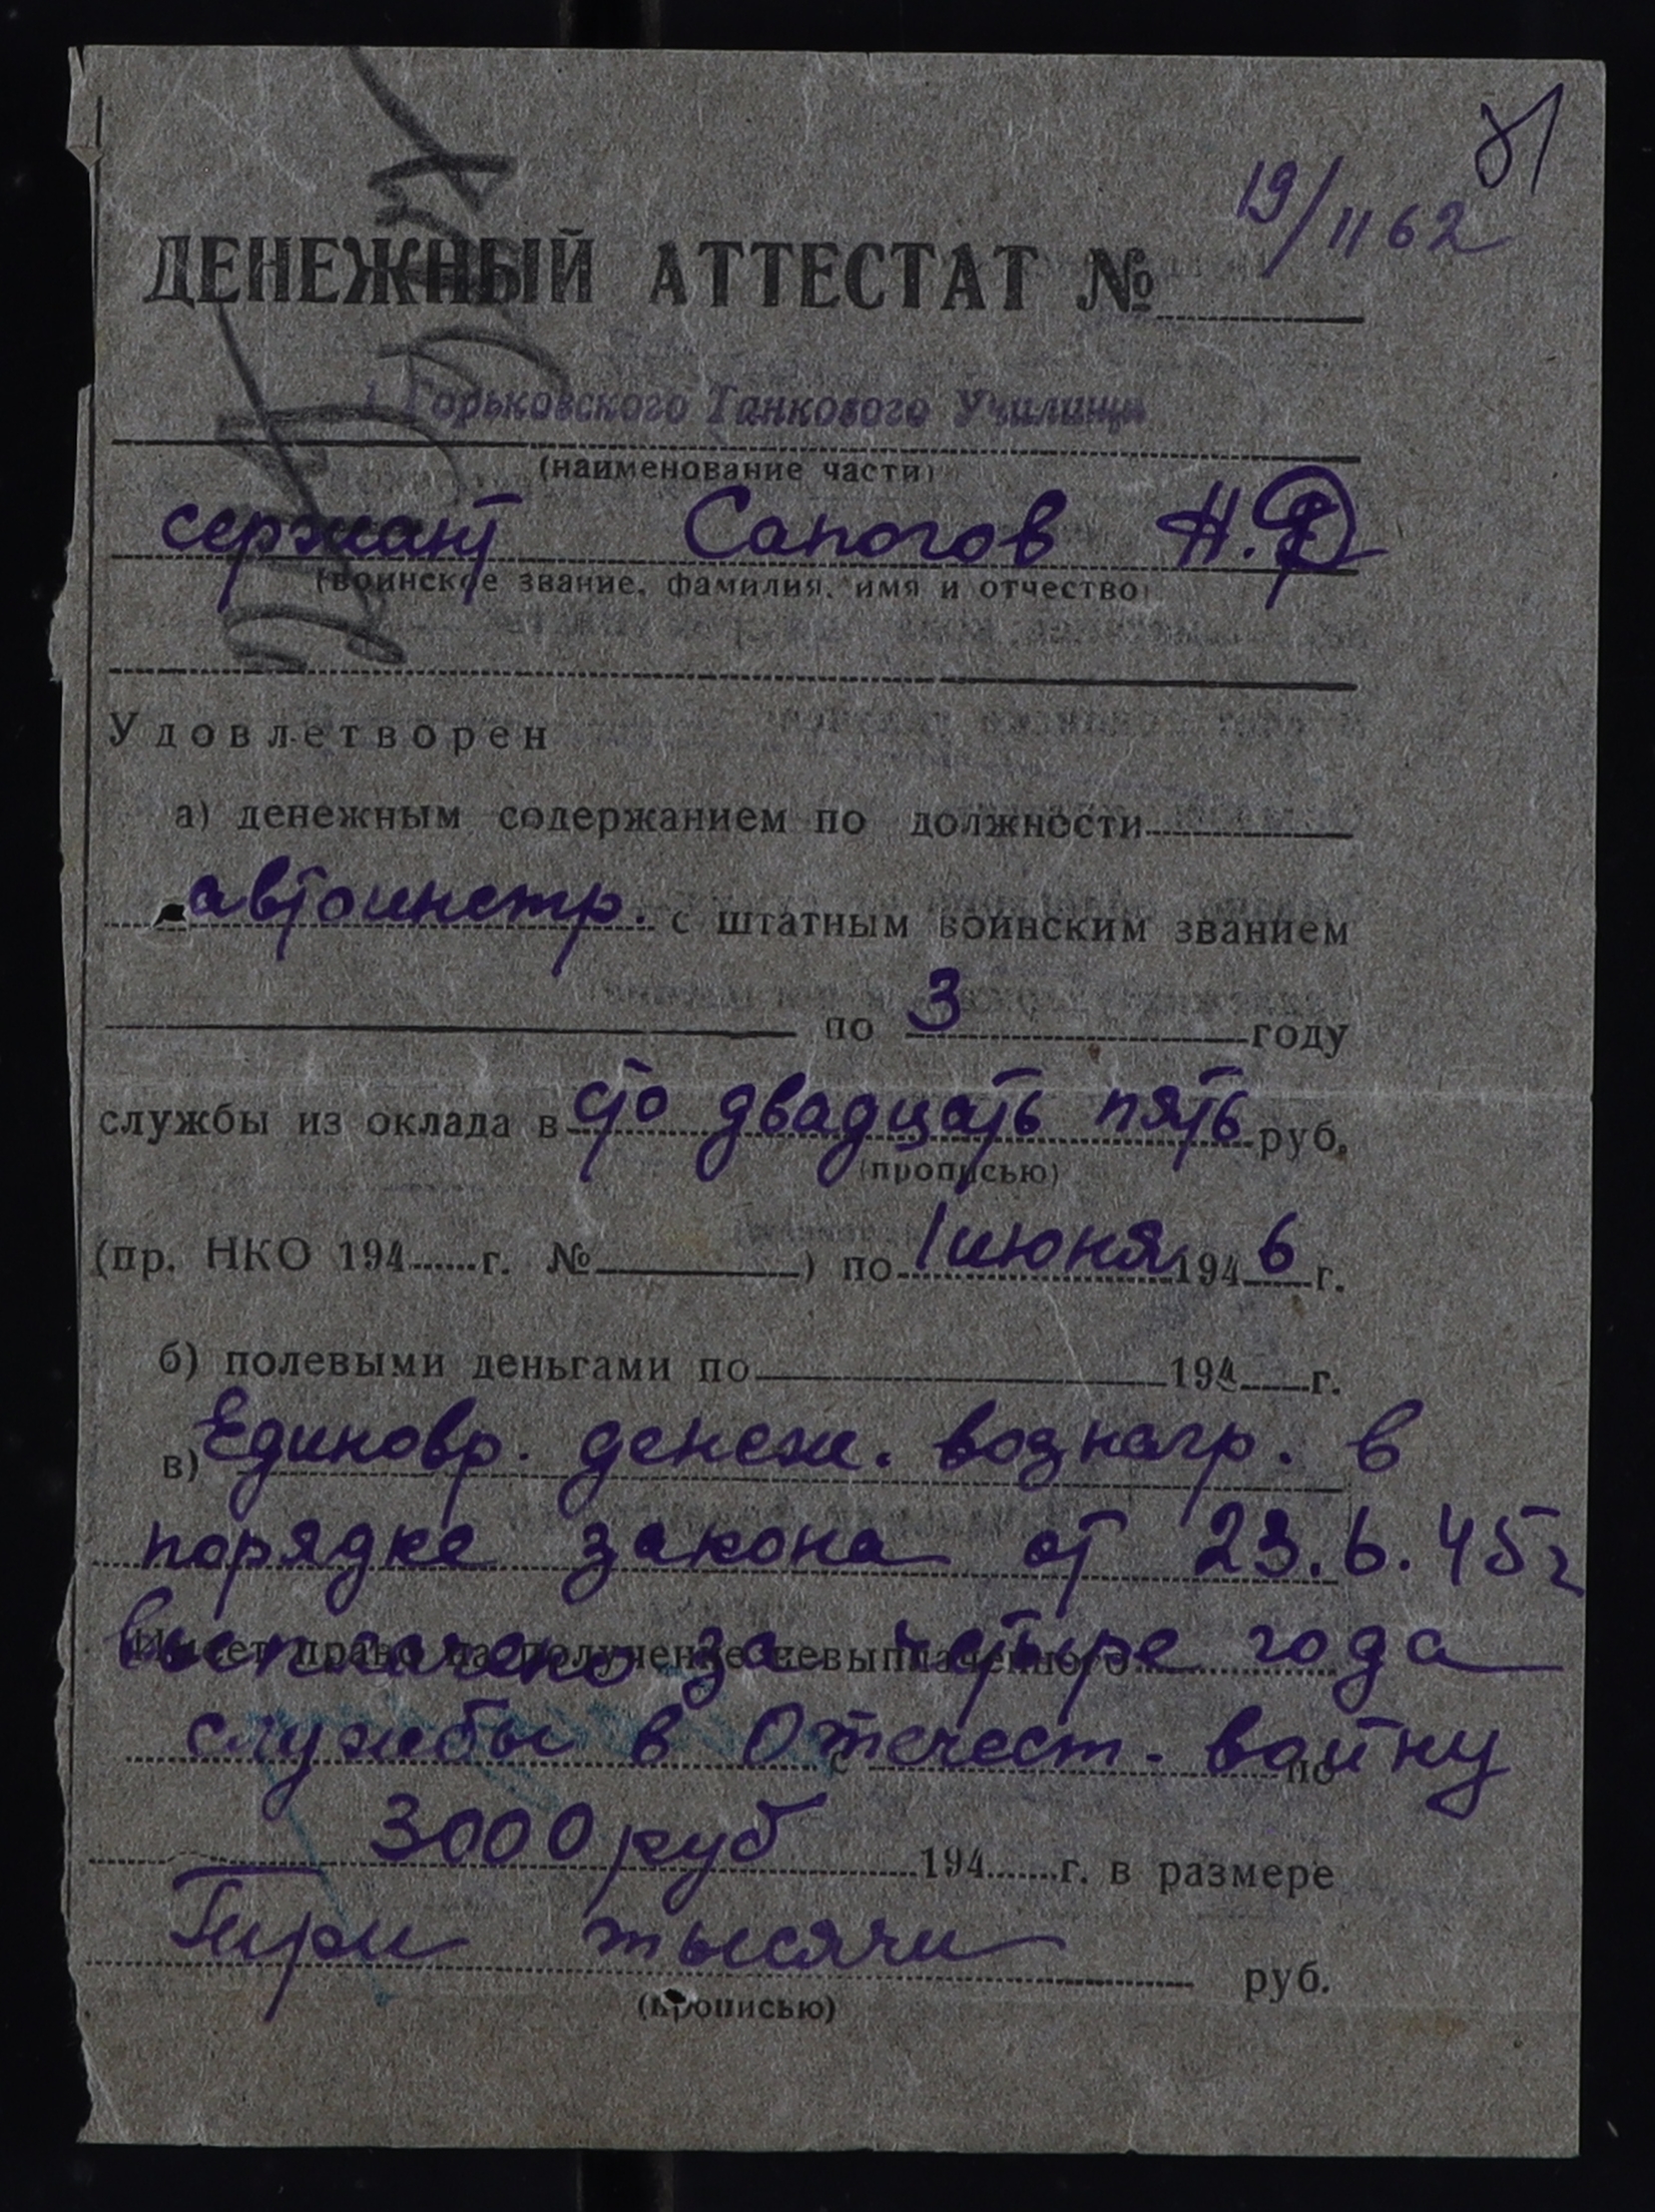 81
19/1162
ДЕНЕЖНЫЙ АТТЕСТАТ №
1 Горьковского Танкового Училища
(наименование части)
сержант Сапогов Н.Ф
(воинское звание, фамилия, имя и отчество)
Удовлетворен
а) денежным содержанием по должности
автоинстр. с штатным воинским званием
по 3 году
службы из оклада в сто двадцать пять руб.
(прописью)
(пр. НКО 194 г. № ) по 1 июня 1946 г.
б) полевыми деньгами по 194 г.
в) Единовр. денеж. вознагр. в
порядке закона от 23.6.45г
Имеет право на получение невыплаченного
выплачено за четыре года
службы в Отечест. войну
с по
3000 руб 194 г. в размере
Три тысячи руб.
(прописью)